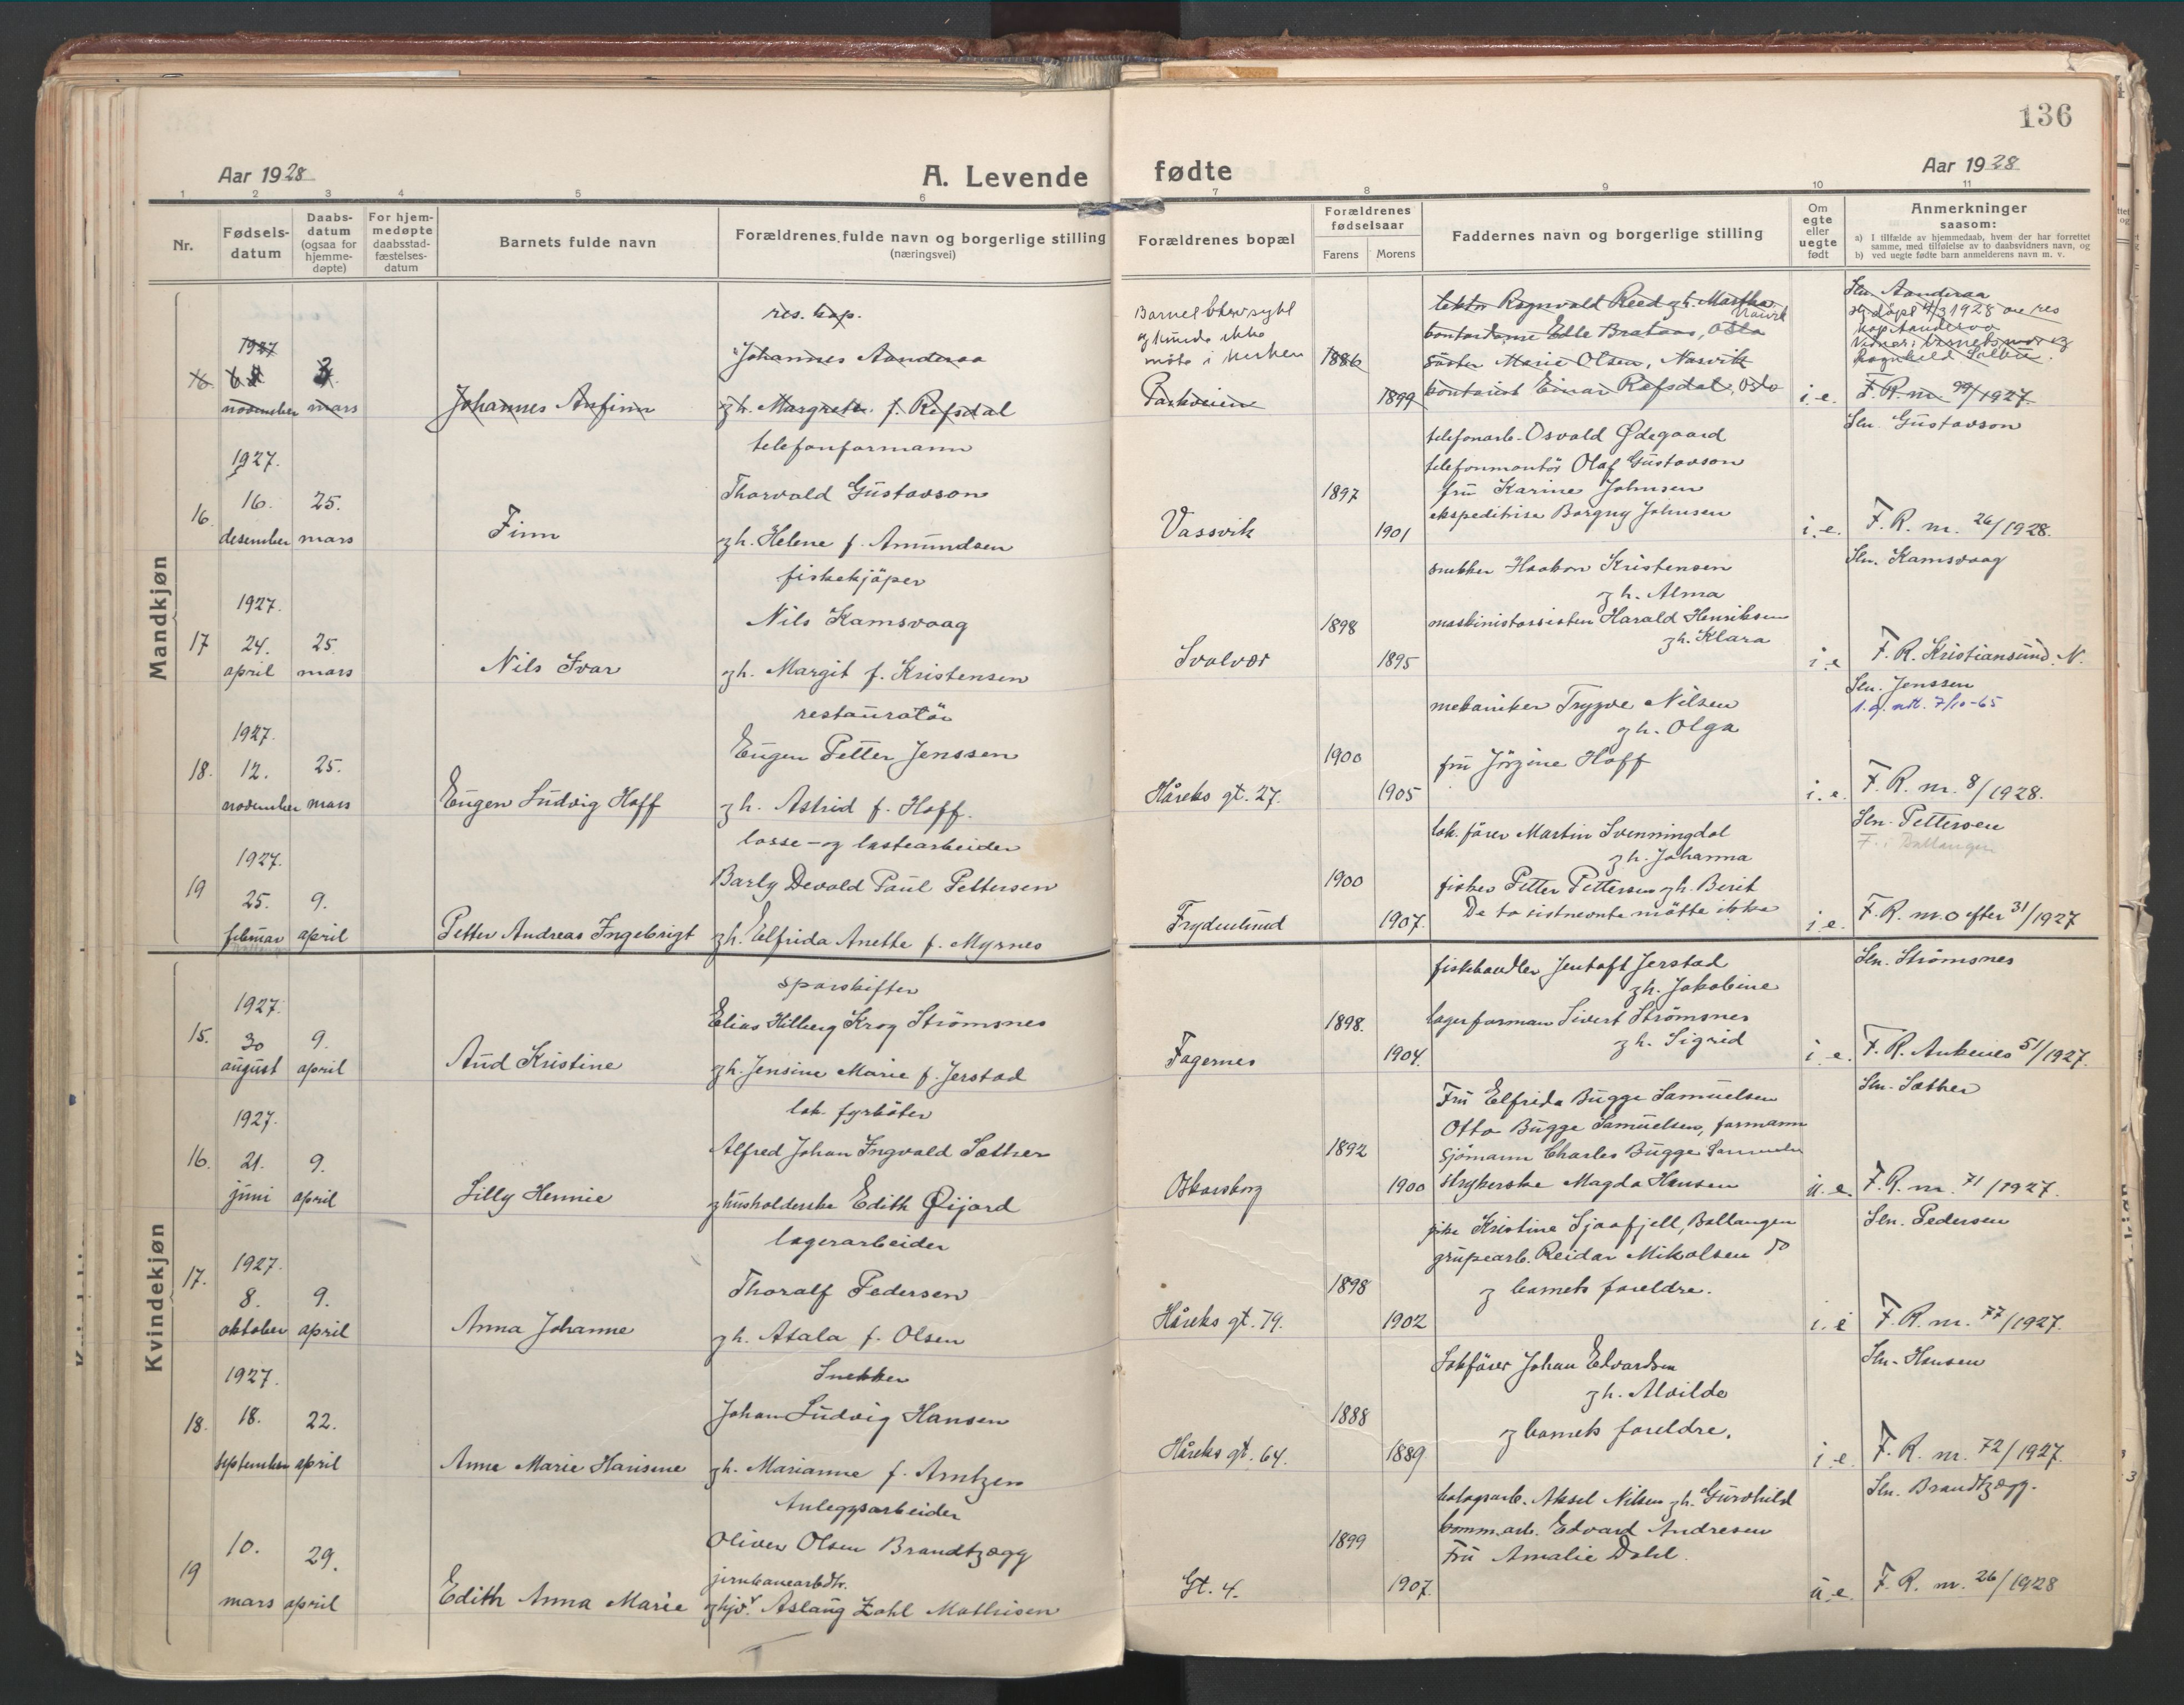 136
Aar 1928
A. Levende fødte
Aar 1928
1 2 3 4 5 6 7 8 9 10 11
Nr.
Fødsels-
datum
Daabs-
datum
(ogsaa for
hjemme-
døpte)
For hjem-
medøpte
daabsstad-
fæstelses-
datum
Barnets fulde navn
Forældrenes fulde navn og borgerlige stilling
(næringsvei)
Forældrenes bopæl
Forældrenes
fødselsaar
Farens Morens
Faddernes navn og borgerlige stilling
Om
egte
eller
uegte
født
Anmerkninger
saasom:
a) I tilfælde av hjemmedaab, hvem der har forrettet
samme, med tilføielse av to daabsvidners navn, og
b) ved uegte fødte barn anmelderens navn m. v.
Mandkjøn
16
1927
november
mars
Johannes Anfinn
res. kap.
Johannes Aanderaa
g h. Margrete f. Refsdal
Barnet blev sykt
og kunde ikke
møte i kirken
Parkveien
1886
1899
lektor Ragnvald Reed g h. Martha
Narvik
kontordame Elle Brataas, Oslo
søster Marie Olsen, Narvik
kontorist Einar Refsdal, Oslo
i. e.
Sln. Aanderaa
Hj. døpt 4/3 1928 av res
kap Aanderaa
Vidner: barnets mor og
Ragnhild Solbu.
F. R. nr. 99/1927.
16.
1927.
16.
desember
25.
mars
Finn
telefonformann
Thorvald Gustavson
g h. Helene f. Amundsen
Vassvik
1897
1901
telefonarb. Osvald Ødegaard
telefonmontör Olaf Gustavson
fru Karine Johnsen
ekspeditrise Borgny Johnsen
i. e.
Sln. Gustavson
F. R. nr. 26/1928.
17
1927.
24.
april
25.
mars
Nils Ivar
fiskekjöper
Nils Kamsvaag
g h. Margit f. Kristensen
Svolvær
1898
1895
snekker Haakon Kristensen
g h. Alma
maskinistassisten Harald Henriksen
g h. Klara
i. e
Sln. Kamsvaag
F. R. Kristiansund. N.
18.
1927.
12.
november
25.
mars
Eugen Ludvig Hoff
restauratör
Eugen Petter Jenssen
g h. Astrid f. Hoff.
Håreks gt. 27.
1900
1905
mekaniker Trygve Nilsen
g h. Olga
fru Jörgine Hoff
i. e.
Sln. Jenssen
1. g. att. 7/10-65
F. R. nr. 8/1928.
19
1927.
25.
februar
9.
april
Petter Andreas Ingebrigt
losse- og lastearbeider
Barly Devold Paul Pettersen
g h. Elfrida Anette f. Myrnes
Frydenlund
1900
1907.
lok. förer Martin Svenningdal
g h. Johanna
fisker Petter Pettersen g h. Berit
De to sistnevnte mötte ikke
i. e.
Sln. Pettersen
F. i Ballangen
F. R. nr. 0 efter 31/1927
Kvindekjøn
15.
1927.
30
august
9.
april
Aud Kristine
sporskifter
Elias Hilberg Krog Strömsnes
g h. Jensine Marie f. Jerstad
Fagernes
1898.
1904.
fiskehandler Jentoft Jerstad
g h. Jakobine
lagerformann Sivert Strömsnes
g h. Sigrid
i. e.
Sln. Strömsnes
F. R. Ankenes 51/1927.
16.
1927.
21.
juni
9.
april
Lilly Hennie
lok. fyrböter
Alfred Johan Ingvald Sæther
g husholderske Edith Øijord
Oskarsborg
1892
1900
Fru Elfrida Bugge Samuelsen
Otto Bugge Samuelsen, formann
Sjömann Charles Bugge Samuelsen
Strykerske Magda Hansen
u. e.
Sln. Sæther
F. R. nr. 71/1927.
17.
1927.
8.
oktober
9.
april
Anna Johanne
lagerarbeider
Thoralf Pedersen
g h. Atala f. Olsen
Håreks gt. 79.
1898
1902
pike Kristine Sjaafjell, Ballangen
grupearb. Reidar Mikalsen do
g barnets foreldre.
i. e
Sln. Pedersen
F. R. nr. 77/1927.
18.
1927.
18.
september
22.
april
Anne Marie Hansine
Snekker
Johan Ludvig Hansen
g h. Marianne f. Arntzen
Håreks gt. 64.
1888
1889
Lokförer Johan Edvardsen
g h. Alvilde
g barnets foreldre.
i. e.
Sln. Hansen
F. R. nr. 72/1927.
19
10.
mars
29.
april
Edith Anna Marie
Anleggsarbeider
Oliver Olsen Brandtzægg
jernbanearbdtr.
g hj.v. Aslaug Zahl Mathisen
Gt. 4.
1899
1907.
Aksel Nilsen g h. Gurdhild
komm. arb. Edvard Andresen
Fru Amalie Dahl.
u. e.
Sln. Brandtzægg.
F. R. nr. 26/1928